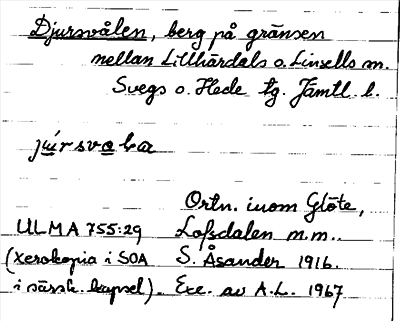 Djursvålen, berg på gränsen
mellan Lillhärdals o. Linsells sn.
Svegs o. Hede tg. Jämtl. l.
júrsvɑlɑ
Ortn. inom Glöte,
ULMA 755:29 Lofsdalen m.m..
(xerokopia i SOA S. Åsander 1916.
i särsk. kapsel). Exc. av A.L. 1967